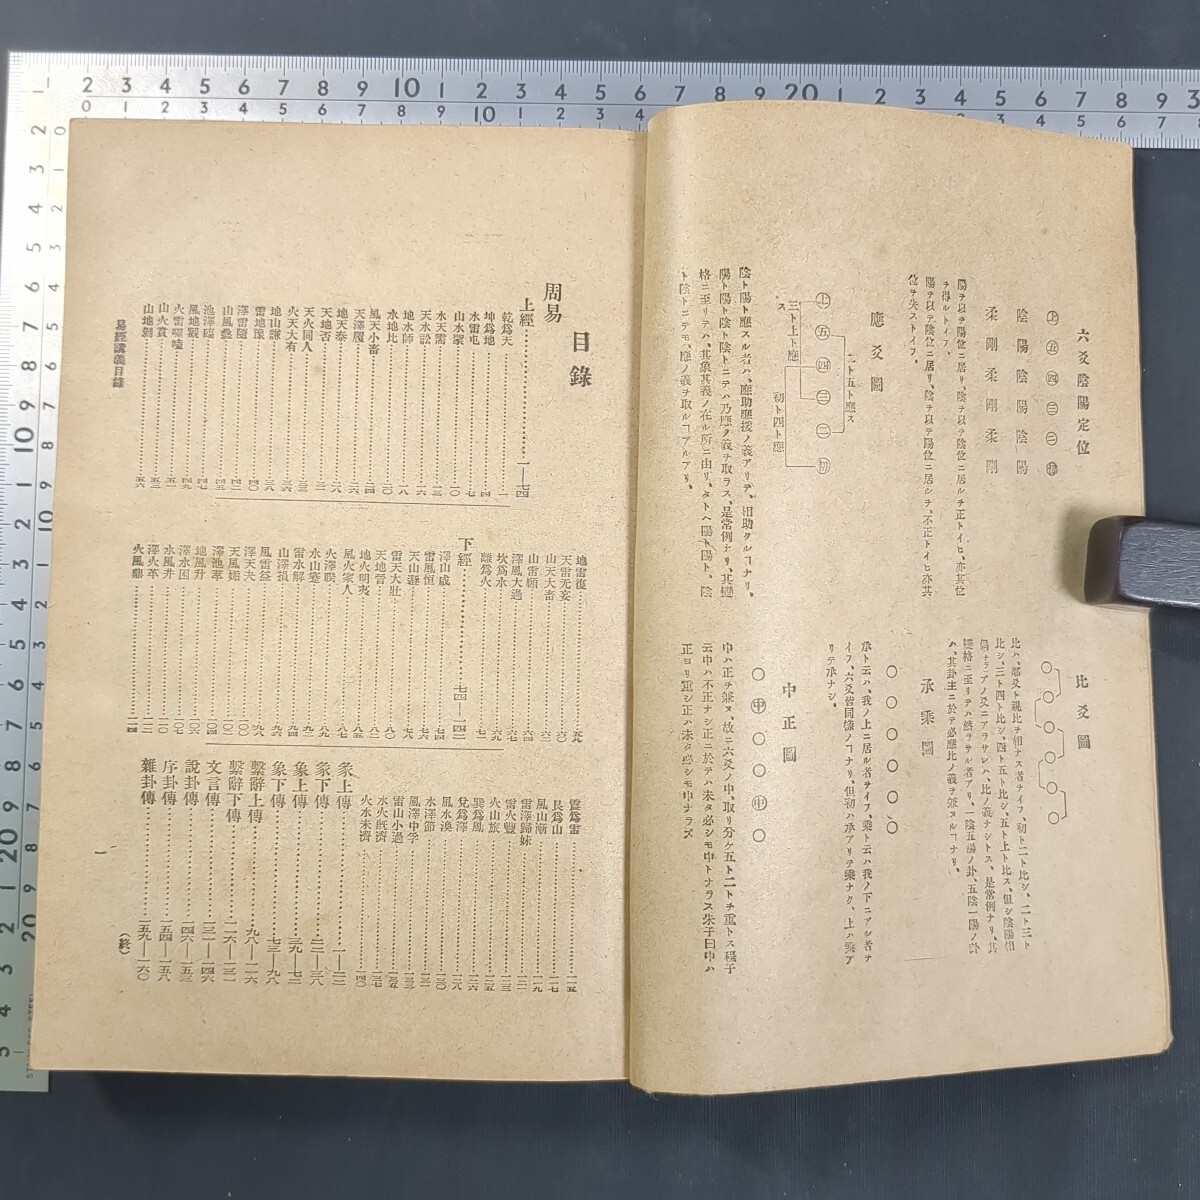 六爻陰陽定位
上五四三二初
陰陽陰陽陰陽
柔剛柔剛柔剛
陽ヲ以テ陽位ニ居リ、陰ヲ以テ陰位ニ居ルヲ正トイヒ、亦其位
ヲ得ルトイフ、
陽ヲ以テ陰位ニ居リ、陰ヲ以テ陽位ニ居ルヲ、不正トイヒ亦其
位ヲ失ストイフ、
應爻圖
二ト五ト應ス
上五四三二初
初ト四ト應
三ト上ト應
ス
陰ト陽ト應スル者ハ、應助應援ノ義アリテ、相助クルヿナリ、
陽ト陽ト陰ト陰トニテハ乃應ノ義ヲ取ラス、是常例ナリ、其變
格ニ至リテハ、其象其義ノ在ル所ニ由リ、タトヘ陽ト陽ト、陰
ト陰トニテモ、應ノ義ヲ取ルヿアルナリ、
比爻圖
比ハ、鄰爻ト親比ヲ相ナス者ヲイフ、初ト二ト比シ、二ト三ト
比シ、三ト四ト比シ、四ト五ト比シ、五ト上ト比ス、但シ陰陽相
ハ、其卦主ニ於テ必應比ノ義ヲ兼スルヿナリ、
承乘圖
承ト云ハ、我ノ上ニ居ル者ヲイフ、乘ト云ハ我ノ下ニアル者ヲ
イフ、六爻皆同樣ノヿナリ、但初ハ承アリテ乘ナク、上ハ乘ア
リテ承ナシ、
中正圖
中 中
中ハ正ヲ兼ヌ、故ニ六爻ノ中、取リ分ケ五ト二トヲ重トス程子
云中ハ不正ナシ正ニ於テハ未タ必シモ中トナラス朱子曰中ハ
正ヨリ重シ正ハ未タ必シモ中ナラズ
目錄
周易
上經……一—七四
乾爲天……一
坤爲地……四
水雷屯……七
山水蒙……一〇
水天需……一三
天水訟……一六
地水師……一八
水地比……二〇
風天小畜……二四
天澤履……二六
地天泰……二八
天地否……三一
天火同人……三三
火天大有……三六
地山謙……三八
雷地豫……四〇
澤雷隨……四二
山風蠱……四四
地澤臨……四七
風地觀……四九
火雷噬嗑……五一
山火賁……五三
山地剝……五六
地雷復……五九
天雷无妄……六〇
山天大畜……六二
山雷頤……六四
澤風大過……六七
坎爲水……六九
離爲火……七一
下經……七四—一四二
澤山咸……七四
雷風恒……七六
天山遯……七八
雷天大壯……八〇
火地晉……八二
地火明夷……八四
風火家人……八五
火澤睽……八七
水山蹇……八九
雷水解……九一
山澤損……九四
風雷益……九六
澤天夬……九八
天風姤……一〇〇
澤地萃……一〇二
地風升……一〇四
澤水困……一〇六
水風井……一〇七
澤火革……一一〇
火風鼎……一一二
震爲雷……一一五
艮爲山……一一七
風山漸……一一九
雷澤歸妹……一二一
雷火豐……一二三
火山旅……一二五
巽爲風……一二六
兌爲澤……一二八
風水渙……一三〇
水澤節……一三一
風澤中孚……一三三
雷山小過……一三五
水火旣濟……一三七
火水未濟……一四〇
彖上傳……一—二二
彖下傳……二二—三八
象上傳……三九—七二
象下傳……七三—九八
繫辭上傳……九八—一一六
繫辭下傳……一一六—一三一
文言傳……一三一—一四六
說卦傳……一四六—一五三
序卦傳……一五四—一五八
雜卦傳……一五九—一六〇
（終）
易經講義目錄
一